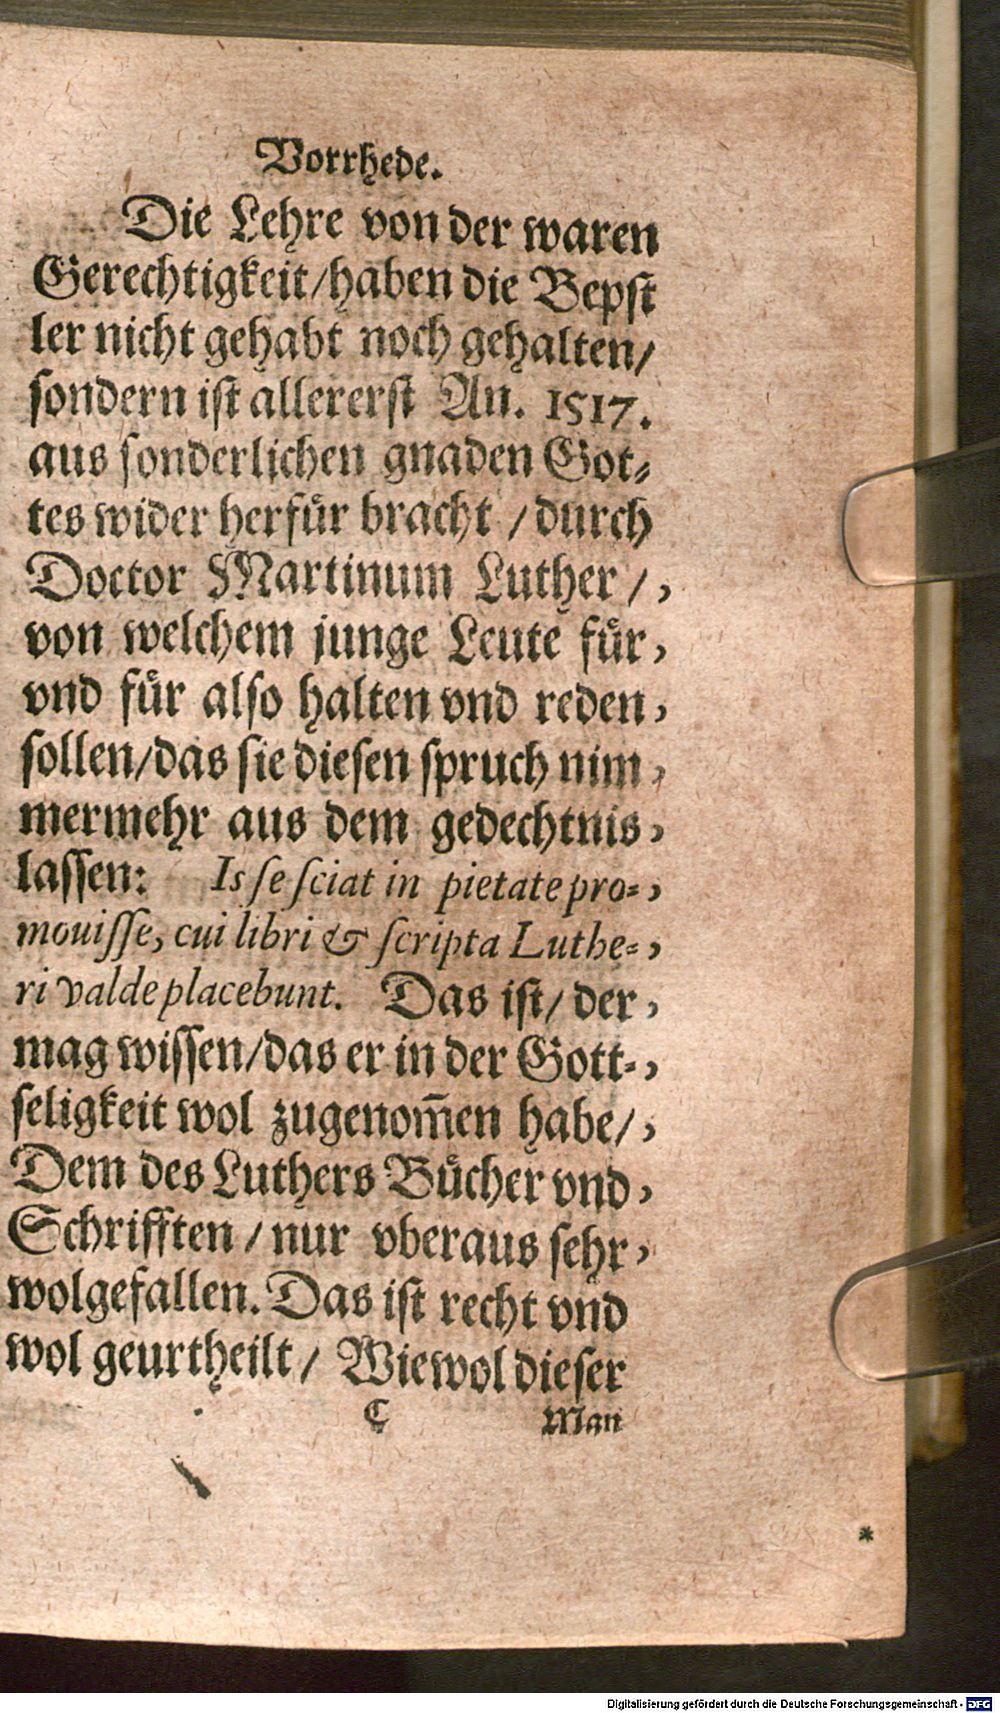 Vorrhede.
Die Lehre von der waren
Gerechtigkeit/haben die Bepst
ler nicht gehabt noch gehalten/
sondern ist allererst An. 1517.
aus sonderlichen gnaden Got⸗
tes wider herfuͤr bracht /durch
Doctor Martinum Luther /,
von welchem junge Leute fuͤr,
vnd fuͤr also halten vnd reden,
sollen/das sie diesen spruch nim,
mermehr aus dem gedechtnis,
lassen: Is se sciat in pietate pro⸗,
mouisse, cui libri & scripta Luthe⸗,
ri valde placebunt. Das ist/ der,
mag wissen/das er in der Gott⸗,
seligkeit wol zugenom̄en habe/,
Dem des Luthers Buͤcher vnd,
Schrifften /nur vberaus sehr,
wolgefallen. Das ist recht vnd
wol geurtheilt / Wiewol dieser
C Man
*
Digitalisierung gefördert durch die Deutsche Forschungsgemeinschaft - DFG